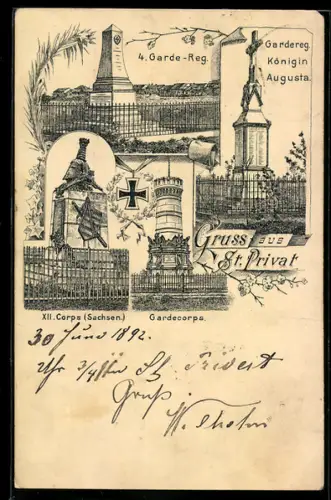 4. Garde-Reg.
Gardereg.
Königin
Augusta.
XII. Corps (Sachsen.)
Gardecorps.
Gruss aus
St. Privat
30 Juni 1892.
Uhr 3/4 St. Privat
Gruß.
Wilhelm